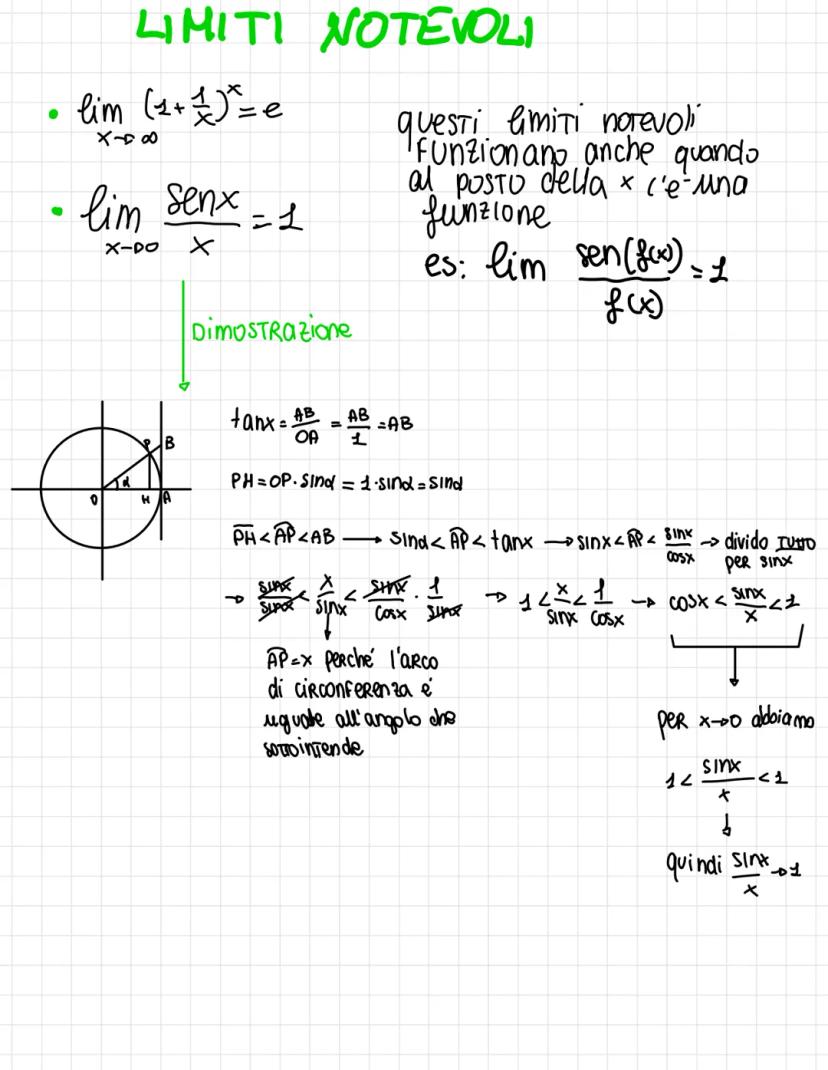 LIMITI NOTEVOLI
• lim x→∞ (1+1/x)^x = e
• lim x→0 senx/x = 1
questi limiti notevoli
funzionano anche quando
al posto della x c'e' una
funzione
es: lim sen(f(x))/f(x) = 1
Dimostrazione
P B
α
O H A
tanx = AB/OA = AB/1 = AB
PH = OP · sinα = 1 · sinα = sinα
PH < AP < AB → sinα < AP < tanx → sinx < AP < sinx/cosx → divido TUTTO
per sinx
→ sinx/sinx < x/sinx < sinx/cosx · 1/sinx → 1 < x/sinx < 1/cosx → cosx < sinx/x < 1
AP = x perché l'arco
di circonferenza é
uguale all'angolo che
sottointende
per x→0 abbiamo
1 < sinx/x < 1
quindi sinx/x → 1